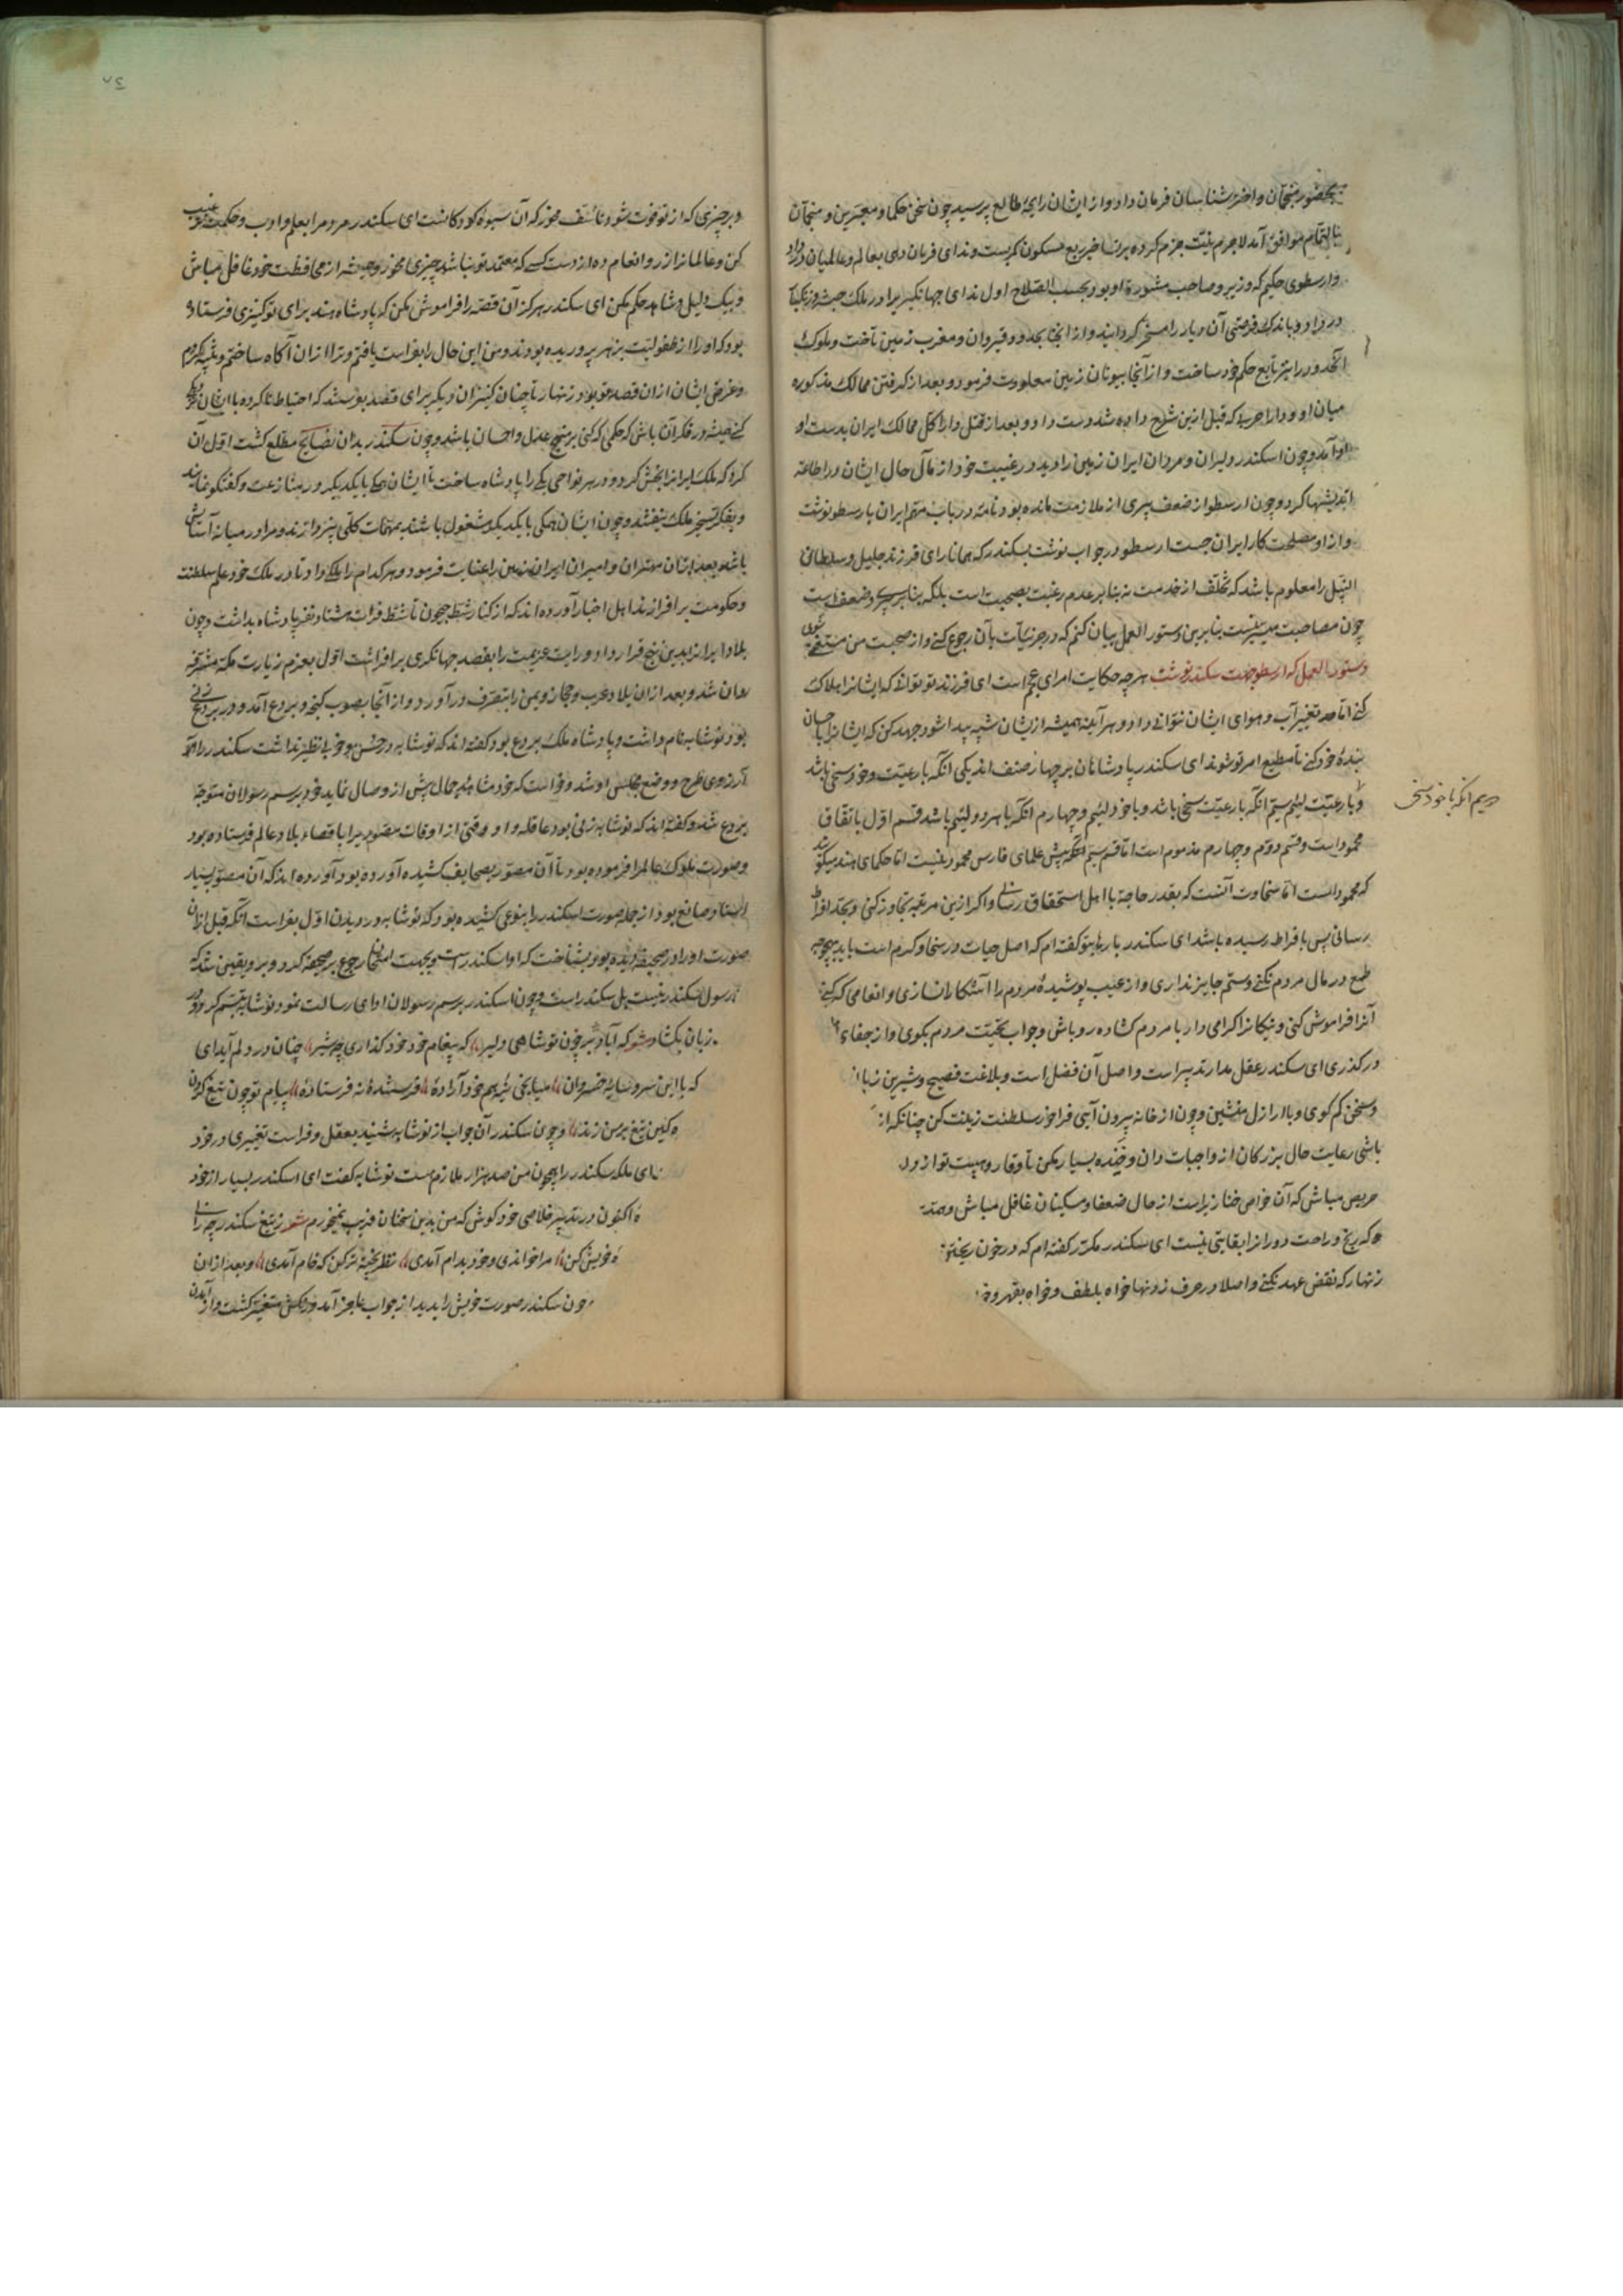 بحضور منجمان و اختر شناسان فرمان داد و از ایشان رایحهٔ طالع پرسید چون سخن حکما و معبرین و منجمان
موافق آمد لاجرم نیت جزم کرده بر تسخیر ربع مسکون کمر بست و ندای فرمان دهی بعالم و عالمیان در داد
و ارسطوی حکیم که وزیر و صاحب مشورة او بود بحسب الصلاح اول ندای جهانگیر برادر ملک حبشه و زنگبار
در داد و باندک فرصتی آن دیار را مسخر گردانید و از آنجا بحدود قیروان و مغرب زمین تاخت و ملوک
آنحدود را نیز تابع حکم خود ساخت و از آنجا بیونان زمین معاودت فرمود و بعد از گرفتن ممالک مذکوره
میان او و دارا حربها که قبل ازین شرح داده شد دست داد و بعد از قتل دارا کل ممالک ایران بدست او
در آمد و چون اسکندر دلیران و مردان ایران زمین را دید در غیبت خود از مآل حال ایشان در اطاعة
اندیشها کرد و چون ارسطو از ضعف پیری از ملازمت مانده بود نامه در باب مهم ایران بارسطو نوشت
و از او مصلحت کار ایران جست ارسطو در جواب نوشت بسکندر که همانا رای فرزند جلیل و سلطانی
النبیل را معلوم باشد که تخلف از خدمت نه بنابر عدم رغبت بصحبت است بلکه بنابر پیری و ضعف است
چون مصاحبت میسر نیست بنابرین دستور العمل بیان کنم که در جزئیات بآن رجوع کنی و از صحبت من مستغنی شوی
دستور العمل که ارسطو جهت سکندر نوشت هر چه حکایت امرای عجم است ای فرزند تو توانی که ایشانرا هلاک
کنی اما تغییر آب و هوای ایشان نتوانی داد و هر آینه همیشه از ایشان شبیه پیدا شود جهد کن که ایشانرا باحسان
بندهٔ خود کنی تا مطیع امر تو شوند ای سکندر پادشاهان بر چهار صنف اند یکی آنکه با رعیت و خود سخی باشد
دویم آنکه با خود سخی
و با رعیت لئیم سیم آنکه با رعیت سخی باشد و با خود لئیم و چهارم آنکه با هر دو لئیم باشد قسم اول باتفاق
محمود است و قسم دوم و چهارم مذموم است اما قسم سیم آنکه پیش علمای فارس محمود نیست اما حکمای هند میگویند
که محمود است اما سخاوت آنست که بقدر حاجة با اهل استحقاق رسانی و اگر ازین مرتبه تجاوز کنی و بحد افراط
رسانی پس بافراط رسیده باشد ای سکندر بارها بتو گفته ام که اصل حیات در سخا و کرم است باید بهیچوجه
طمع در مال مردم نکنی و ستم جایز نداری و از عیب پوشیدهٔ مردم را آشکارا نسازی و انعامی که کنی
آنرا فراموش کنی و نیکانرا گرامی دار با مردم گشاده رو باش و جواب تحیت مردم بگوی و از جفاء
در گذری ای سکندر عقل مدار تدبیر است و اصل آن فضل است و بلاغت فصیح و شیرین زبا
و سخن کم گوی و با ارازل منشین و چون از خانه بیرون آیی فراخور سلطنت زینت کن چنانکه از
باشی رعایت حال بزرگان از واجبات دان و خنده بسیار مکن تا وقار و هیبت تو از
حریص مباش که آن خواص خنازیر است از حال ضعفا و مسکینان غافل مباش و
که رنج و راحت دور انرا بقایتی نیست ای سکندر مکرر گفته ام که در خون ریختن
زنهار که نقض عهد نکنی و اصلا در حرف زدنها خواه بلطف و خواه بقهر
و بر چیزی که از تو فوت شود تأسف مخور که آن شیوه کودکانست ای سکندر مردم را بعلم و ادب و حکمت ترغیب
کن و عالمانرا زر و انعام ده از دست کسی که معتمد تو نباشد چیزی مخور و همیشه از محافظت خود غافل مباش
و بیک دلیل و شاهد حکم مکن ای سکندر هرگز آن قصه را فراموش مکن که پادشاه هند برای تو کنیزی فرستاده
بود که او را از طفولیت بزهر پروریده بودند و من این حال را بفراست یافتم و ترا از آن آگاه ساختم
و غرض ایشان از آن قصد تو بود زنهار تا چنان کنیزان دیگر برای قصد تو نفرستند که احتیاط ناکرده با ایشان
کنی همیشه در فکر آن باش که حکمی که کنی بر منهج عدل و احسان باشد و چون سکندر بدان نصایح مطلع گشت اول آن
کرد که ملک ایرانرا بخش کرد و در هر نواحی یکی را پادشاه ساخت تا ایشان همه با یکدیگر در منازعت و گفتگو نمایند
و بفکر تسخیر ملک نیفتند و چون ایشان همگی با یکدیگر مشغول باشند بمهمات کلی نپردازند و مرا در میانه آسایش
باشد بعد از آن مهتران و امیران ایران زمین را عنایت فرمود و هر کدام را ملکی داد تا در ملک خود علم سلطنت
و حکومت بر افرازند اهل اخبار آورده اند که از کنار شط جیحون تا شط فرات هشتاد نفر پادشاه بداشت و چون
بلاد ایرانرا بدین نهج قرار داد و رایت عزیمت را بقصد جهانگیری بر افراشت اول بعزم زیارت مکهٔ مشرفه
روان شد و بعد از آن بلاد عرب و حجاز و یمن را بتصرف در آورد و از آنجا بصوب گنجه و بردع آمد و در بردع زنی
بود نوشابه نام داشت و پادشاه ملک بردع بود گفته اند که نوشابه در حسن و خوبی نظیر نداشت سکندر را
آرزوی طرح و وضع مجلس او شد و خواست که خود مشاهدهٔ جمال پیش از وصال نماید خود برسم رسولان متوجه
بردع شد و گفته اند که نوشابه زنی بود عاقله و او وقتی از اوقات مصوریرا باقصاء بلاد عالم فرستاده بود
و صورت ملوک عالم را فرموده بود تا آن مصور بصحایف کشیده آورده بود آورده اند که آن مصور بسیار
استاد و صانع بود از جمله صورت اسکندر را بنوعی کشیده بود که نوشابه در دیدن اول بفراست آنکه قبل از آن
صورت او را در صحیفه دیده بود بشناخت که او اسکندر است و بجهت امتحان رجوع بر صحیفه کرد و بر و یقین شد که
رسول سکندر نیست بل سکندر است و چون اسکندر برسم رسولان ادای رسالت نمود نوشابه تبسم کرد و
زبان بگشاد شعر که آباد بر چون تو شاهی دلیر که پیغام خود خود گذاری چو شیر چنان در دلم آید ای
که با این سر و سایهٔ خسروان میانجی نئی هم خود آزادهٔ فرستندهٔ نه فرستادهٔ پیام تو چون تیغ گردن
ه کین تیغ بر من زند و چون سکندر آن جواب از نوشابه شنید بعقل و فراست تغییری در خود
ای ملکه سکندر را همچون من صد هزار ملازم هست نوشابه گفت ای اسکندر بسیار از خود
اکنون در تدبیر خلاصی خود کوش که من بدین سخنان فریب نمیخورم شعر ز تیغ سکندر چه رانی
خویش کن مرا خواندی و خود بدام آمدی نظر پخته تر کن که خام آمدی و بعد از آن
چون سکندر صورت خویش را بدید از جواب عاجز آمد و رنگش متغیر گشت و از آمدن